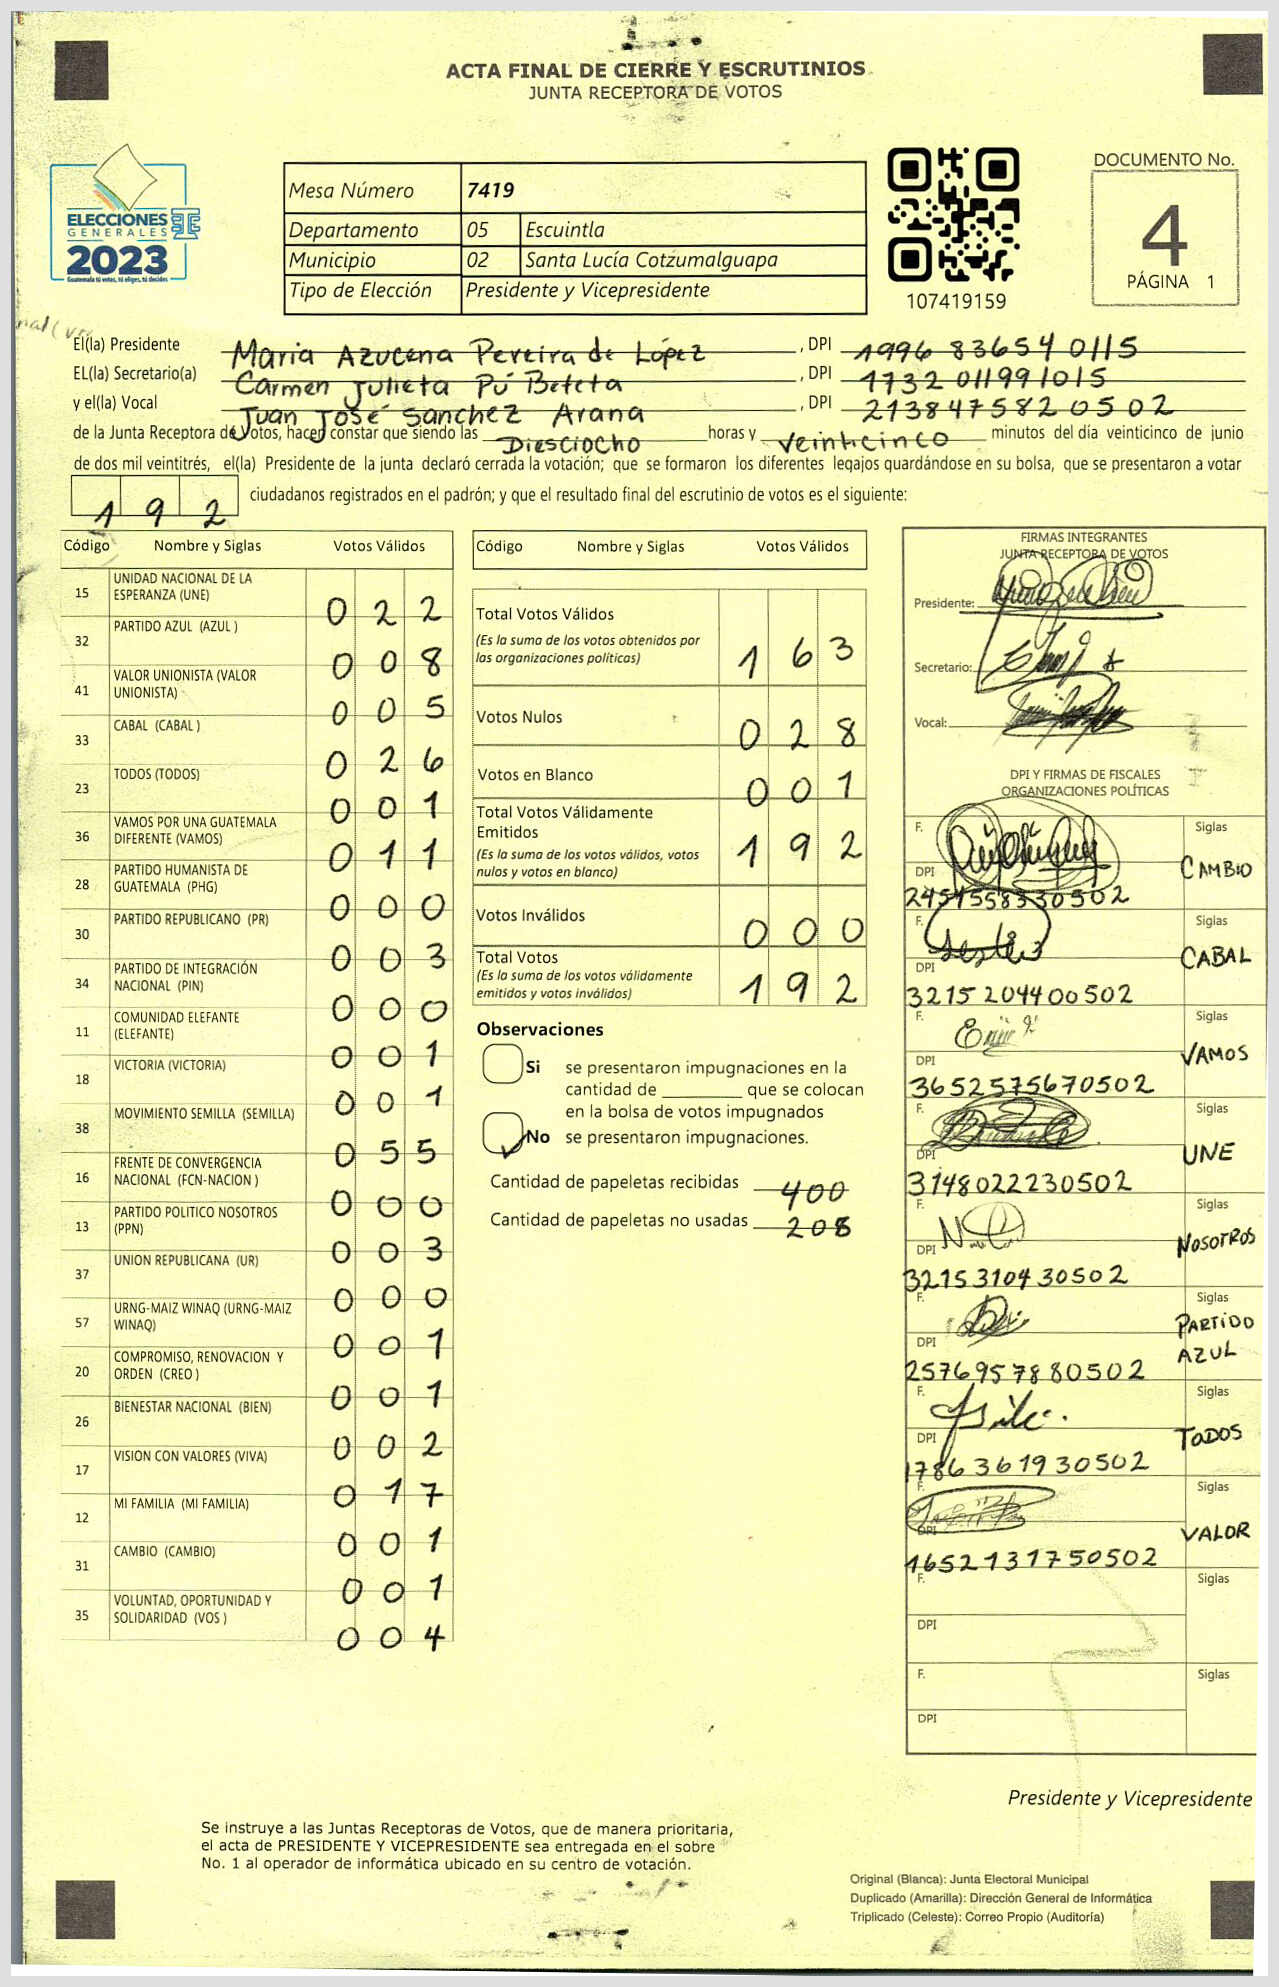 ACTA FINAL DE CIERRE Y ESCRUTINIOS
JUNTA RECEPTORA DE VOTOS
ELECCIONES
GENERALES
2023
Guatemala tú votas, tú eliges, tú decides
Mesa Número 7419
Departamento 05 Escuintla
Municipio 02 Santa Lucía Cotzumalguapa
Tipo de Elección Presidente y Vicepresidente
107419159
DOCUMENTO No.
4
PÁGINA 1
El(la) Presidente Maria Azucena Pereira de López, DPI 1996 83654 0115
EL(la) Secretario(a) Carmen Julieta Pú Beteta, DPI 1732 01199 1015
y el(la) Vocal Juan José Sanchez Arana, DPI 2138475820502
de la Junta Receptora de Votos, hacen constar que siendo las Diesciocho horas y veinticinco minutos del día veinticinco de junio
de dos mil veintitrés, el(la) Presidente de la junta declaró cerrada la votación; que se formaron los diferentes legajos guardándose en su bolsa, que se presentaron a votar
192 ciudadanos registrados en el padrón; y que el resultado final del escrutinio de votos es el siguiente:
Código Nombre y Siglas Votos Válidos
15 UNIDAD NACIONAL DE LA ESPERANZA (UNE) 022
32 PARTIDO AZUL (AZUL ) 008
41 VALOR UNIONISTA (VALOR UNIONISTA) 005
33 CABAL (CABAL ) 026
23 TODOS (TODOS) 001
36 VAMOS POR UNA GUATEMALA DIFERENTE (VAMOS) 011
28 PARTIDO HUMANISTA DE GUATEMALA (PHG) 000
30 PARTIDO REPUBLICANO (PR) 003
34 PARTIDO DE INTEGRACIÓN NACIONAL (PIN) 000
11 COMUNIDAD ELEFANTE (ELEFANTE) 001
18 VICTORIA (VICTORIA) 001
38 MOVIMIENTO SEMILLA (SEMILLA) 055
16 FRENTE DE CONVERGENCIA NACIONAL (FCN-NACION ) 000
13 PARTIDO POLITICO NOSOTROS (PPN) 003
37 UNION REPUBLICANA (UR) 000
57 URNG-MAIZ WINAQ (URNG-MAIZ WINAQ) 001
20 COMPROMISO, RENOVACION Y ORDEN (CREO ) 001
26 BIENESTAR NACIONAL (BIEN) 002
17 VISION CON VALORES (VIVA) 017
12 MI FAMILIA (MI FAMILIA) 001
31 CAMBIO (CAMBIO) 001
35 VOLUNTAD, OPORTUNIDAD Y SOLIDARIDAD (VOS ) 004
Código Nombre y Siglas Votos Válidos
Total Votos Válidos 163
(Es la suma de los votos obtenidos por
las organizaciones políticas)
Votos Nulos 028
Votos en Blanco 001
Total Votos Válidamente
Emitidos 192
(Es la suma de los votos válidos, votos
nulos y votos en blanco)
Votos Inválidos 000
Total Votos 192
(Es la suma de los votos válidamente
emitidos y votos inválidos)
Observaciones
Si se presentaron impugnaciones en la
cantidad de ________ que se colocan
en la bolsa de votos impugnados
No se presentaron impugnaciones.
Cantidad de papeletas recibidas 400
Cantidad de papeletas no usadas 208
FIRMAS INTEGRANTES
JUNTA RECEPTORA DE VOTOS
Presidente:
Secretario:
Vocal:
DPI Y FIRMAS DE FISCALES
ORGANIZACIONES POLÍTICAS
F. Siglas
CAMBIO
DPI
2454558330502
F. Siglas
CABAL
DPI
3215 204400502
F. Siglas
VAMOS
DPI
3652575670502
F. Siglas
UNE
DPI
3148022230502
F. Siglas
NOSOTROS
DPI
3215310430502
F. Siglas
PARTIDO
AZUL
DPI
2576957880502
F. Siglas
TODOS
DPI
1786361930502
F. Siglas
VALOR
DPI
1652131750502
F. Siglas
DPI
F. Siglas
DPI
Presidente y Vicepresidente
Se instruye a las Juntas Receptoras de Votos, que de manera prioritaria,
el acta de PRESIDENTE Y VICEPRESIDENTE sea entregada en el sobre
No. 1 al operador de informática ubicado en su centro de votación.
Original (Blanca): Junta Electoral Municipal
Duplicado (Amarilla): Dirección General de Informática
Triplicado (Celeste): Correo Propio (Auditoría)